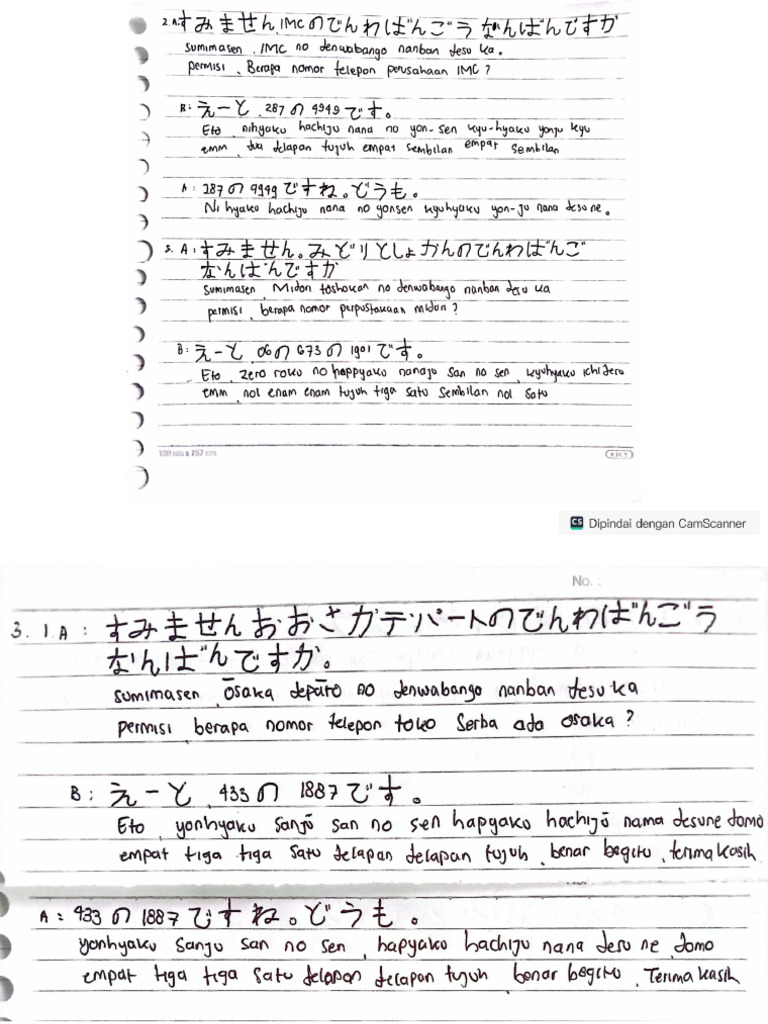 2. A: すみません、IMCのでんわばんごう なんばんですか
sumimasen , IMC no denwabango nanban desu ka.
permisi , Berapa nomor telepon perusahaan IMC ?
B: えーと 、287の 4949です。
Eto , nihyaku hachiju nana no yon-sen kyu-hyaku yonju kyu
emm , dua delapan tujuh empat sembilan empat sembilan
A: 287の 4949ですね。どうも。
Ni hyaku hachiju nana no yonsen kyuhyaku yon-jo nana desu ne.
3. A: すみません。みどりとしょかんのでんわばんご
なんばんですか
sumimasen , Midori toshokan no denwabango nanban desu ka
permisi , berapa nomor perpustakaan midori ?
B: えーと 、06の 673の 1901です。
Eto , zero roku no happyaku nanaju san no sen , kyuhyaku ichi zero
emm , nol enam enam tujuh tiga satu sembilan nol satu
180 mm x 257 mm
KIKY
CS Dipindai dengan CamScanner
No. :
3. 1. A : すみませんおおさかデパートのでんわばんごう
なんばんですか。
sumimasen , ōsaka depāto no denwabango nanban desu ka
permisi , berapa nomor telepon toko serba ada osaka ?
B : えーと 、433の 1887です。
Eto , yonhyaku sanjō san no sen hapyaku hachijō nama desune domo
empat tiga tiga satu delapan delapan tujuh , benar begitu , terima kasih
A : 433の 1887ですね。どうも。
yonhyaku sanju san no sen , hapyaku hachiju nana desu ne , domo
empat tiga tiga satu delapan delapan tujuh benar begitu , Terima kasih